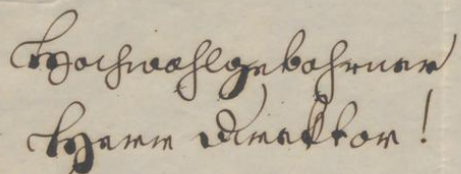 Hochwohlgebohrner
Herr Direktor!